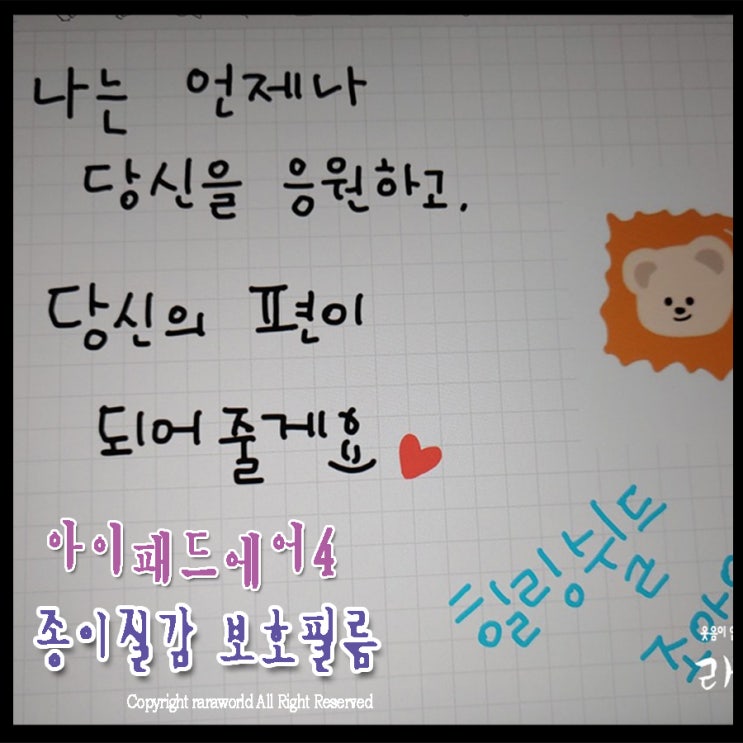 나는 언제나
당신을 응원하고.
당신의 편이
되어줄게요
힐링쉴드
아이패드에어4
종이질감 보호필름
웃음이
Copyright raraworld All Right Reserved